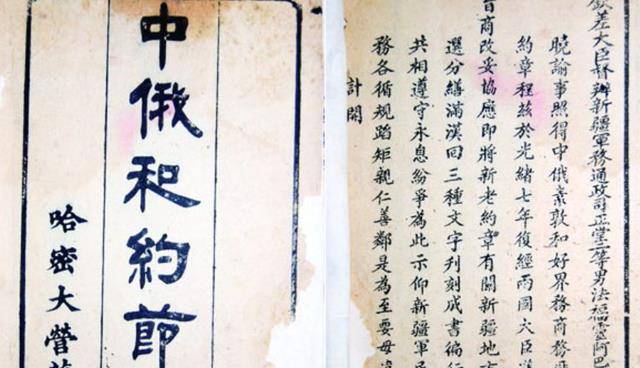 中俄和約節
哈密大營
欽差大臣督辦新疆軍務通政司正堂二等男法福靈阿巴
曉諭事照得中俄素敦和好界務商務
約章程茲於光緒七年復經兩國大臣
旨商改妥協應即將新老約章有關新疆地方
選分繕滿漢回三種文字刊刻成書編行
共相遵守永息紛爭為此示仰新疆軍
務各循規蹈矩親仁善鄰是為至要毋
計開